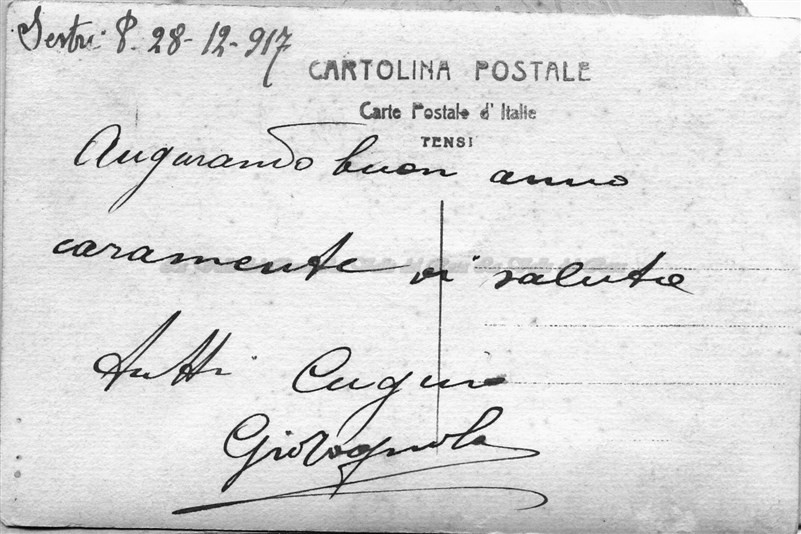 Sestri P. 28-12-917
CARTOLINA POSTALE
Carte Postale d'Italie
TENSI
Augurando buon anno
caramente vi saluta
tutti Cugino